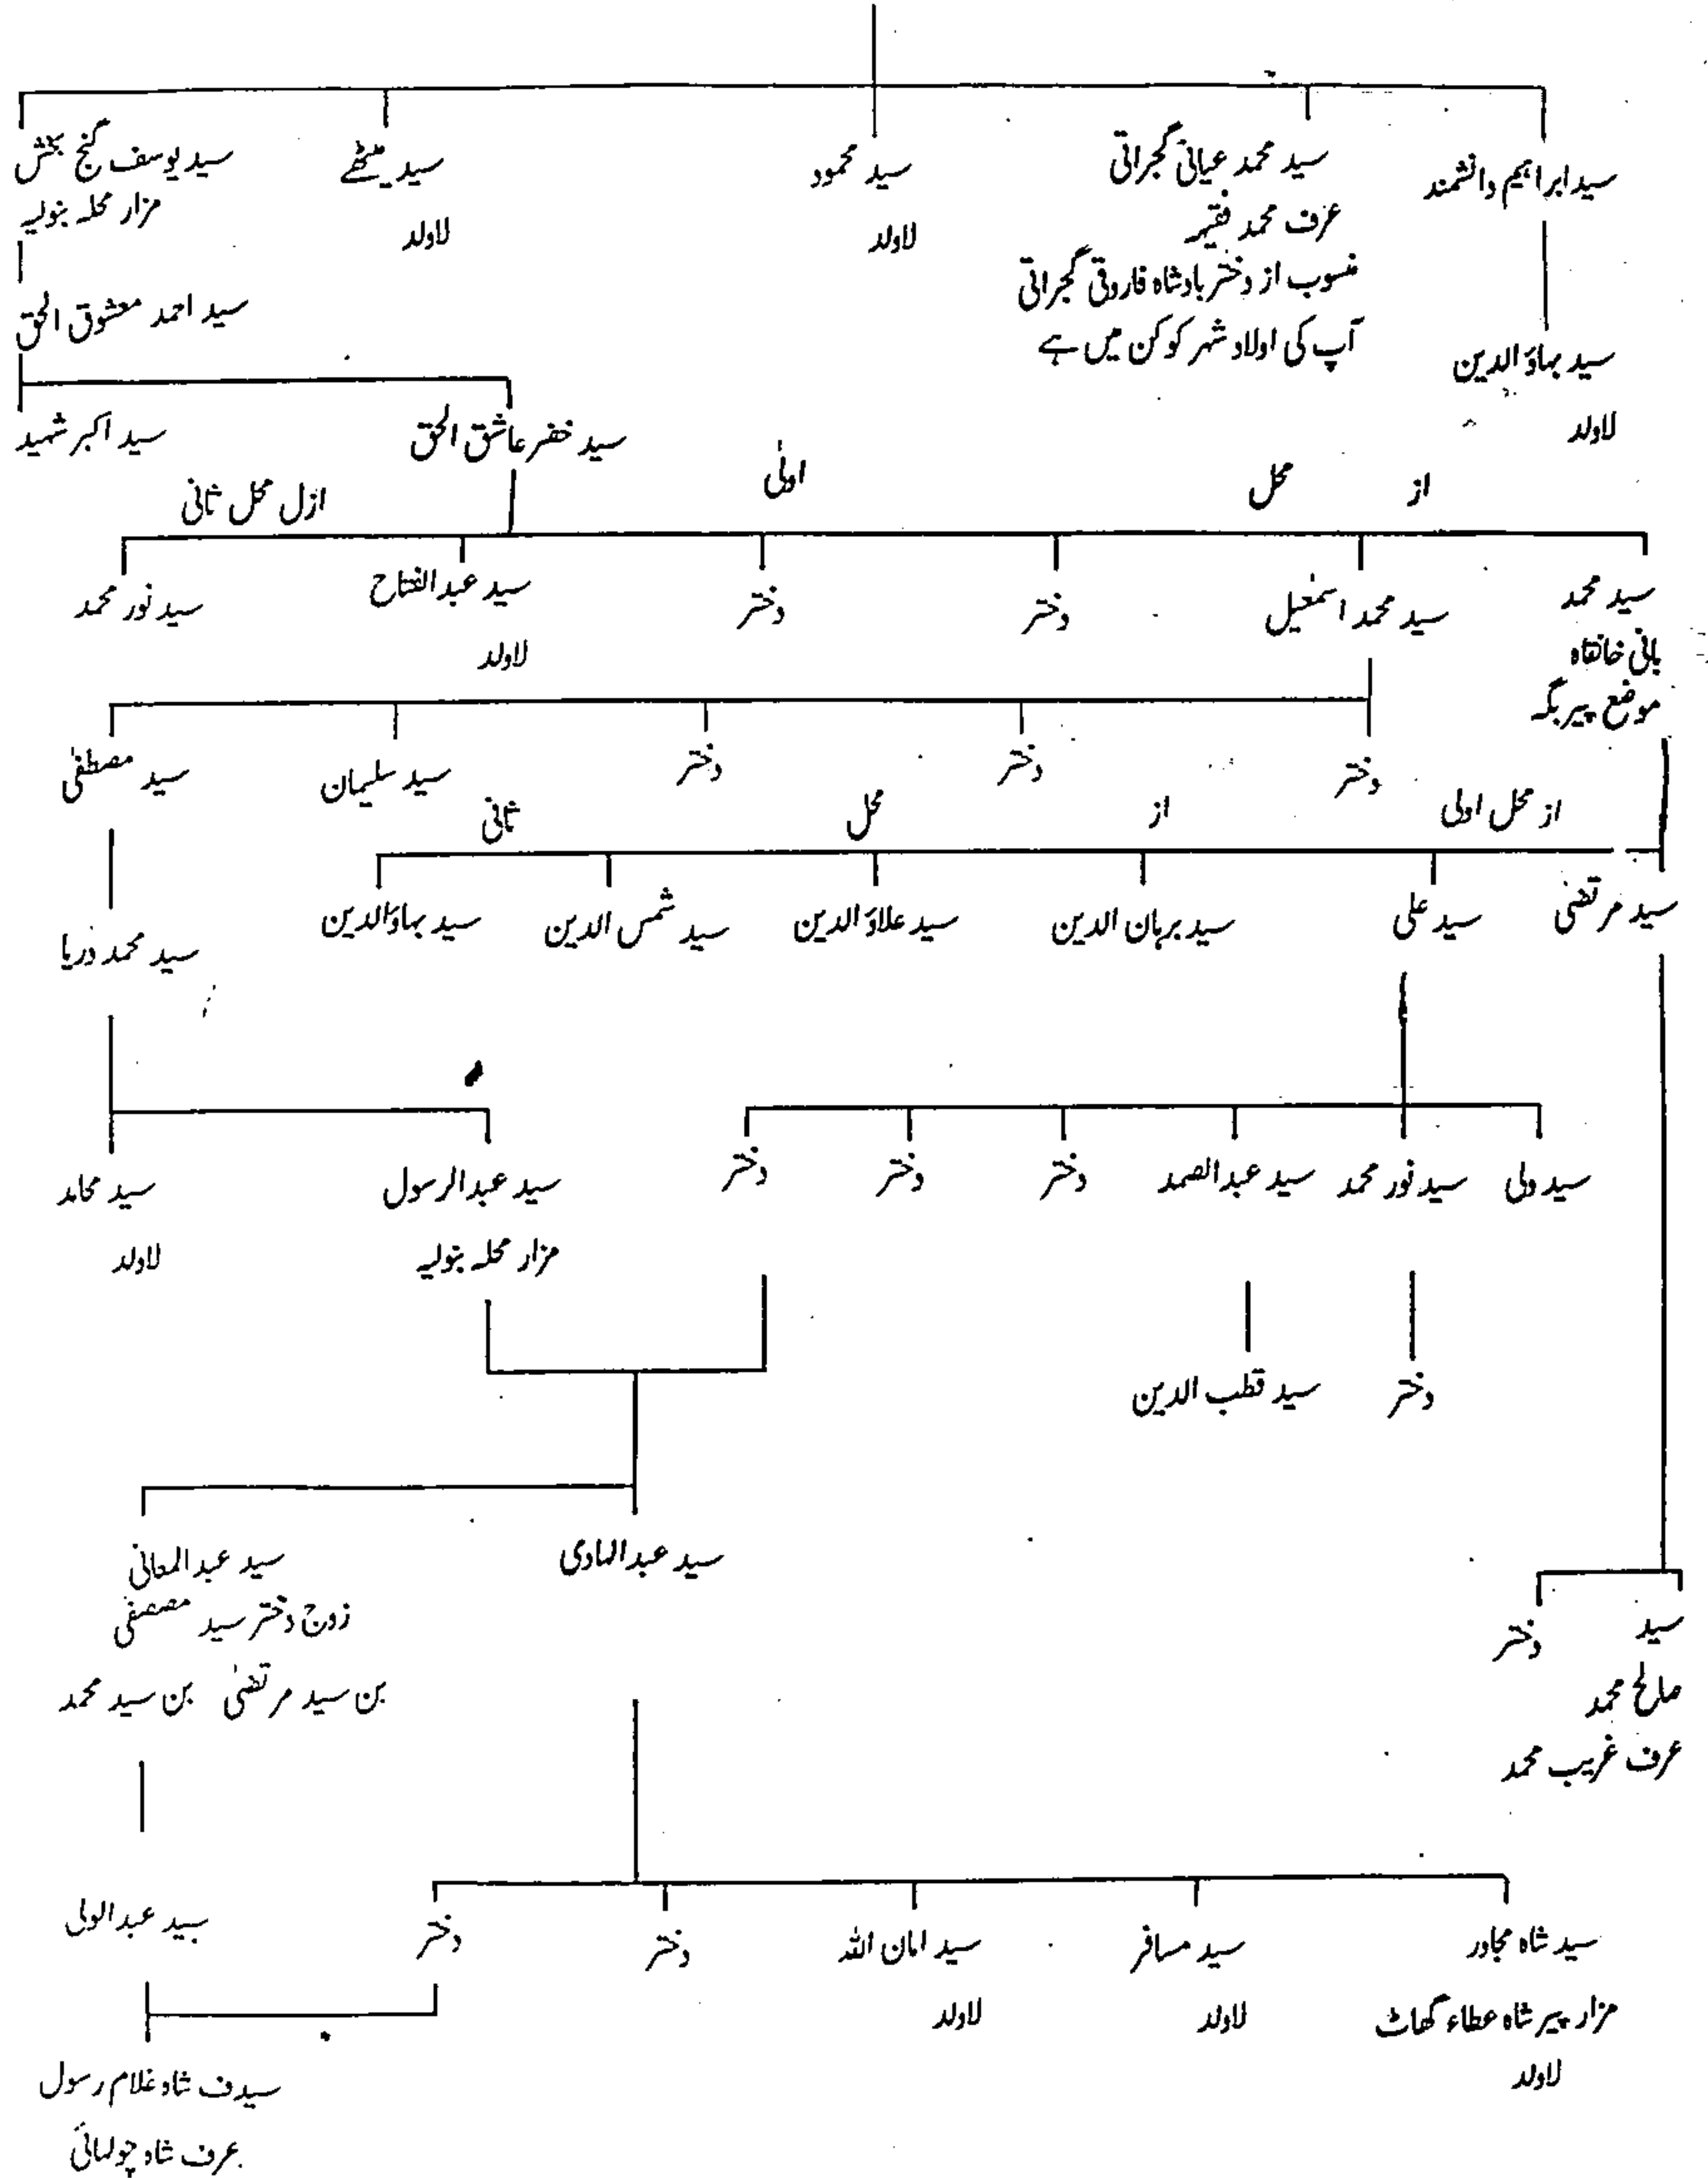 سید ابراہیم دانشمند
سید بہاؤ الدین
لاولد
سید محمد عیانی گجراتی
عرف محمد فقیہہ
منسوب از دختر بادشاہ فاروقی گجراتی
آپ کی اولاد شہر کوکن میں ہے
سید محمود
لاولد
سید مٹھے
لاولد
سید یوسف گنج بخش
مزار محلہ بنولیہ
سید احمد معشوق الحق
سید خضر عاشق الحق
سید اکبر شہید
از محل اولٰی
ازل محل ثانی
سید محمد
بانی خانقاہ
موضع پیر بگہ
سید محمد اسمٰعیل
دختر
دختر
سید عبدالفتاح
لاولد
سید نور محمد
دختر
دختر
دختر
سید سلیمان
سید مصطفٰی
از محل اولی
از محل ثانی
سید مرتضٰی
سید علی
سید برہان الدین
سید علاؤ الدین
سید شمس الدین
سید بہاؤالدین
سید محمد دریا
سید ولی
سید نور محمد
سید عبدالصمد
دختر
دختر
دختر
سید عبدالرسول
مزار محلہ بنولیہ
سید محامد
لاولد
دختر
سید قطب الدین
سید عبدالہادی
سید عبدالمعانی
زوج دختر سید مصصفٰی
بن سید مرتضٰی بن سید محمد
سید
صالح محمد
عرف غریب محمد
دختر
سید شاہ مجاور
مزار پیر شاہ عطاء گھاٹ
لاولد
سید مسافر
لاولد
سید امان اللہ
لاولد
دختر
دختر
سید عبدالولی
سیدف شاہ غلام رسول
عرف شاہ چولہائی